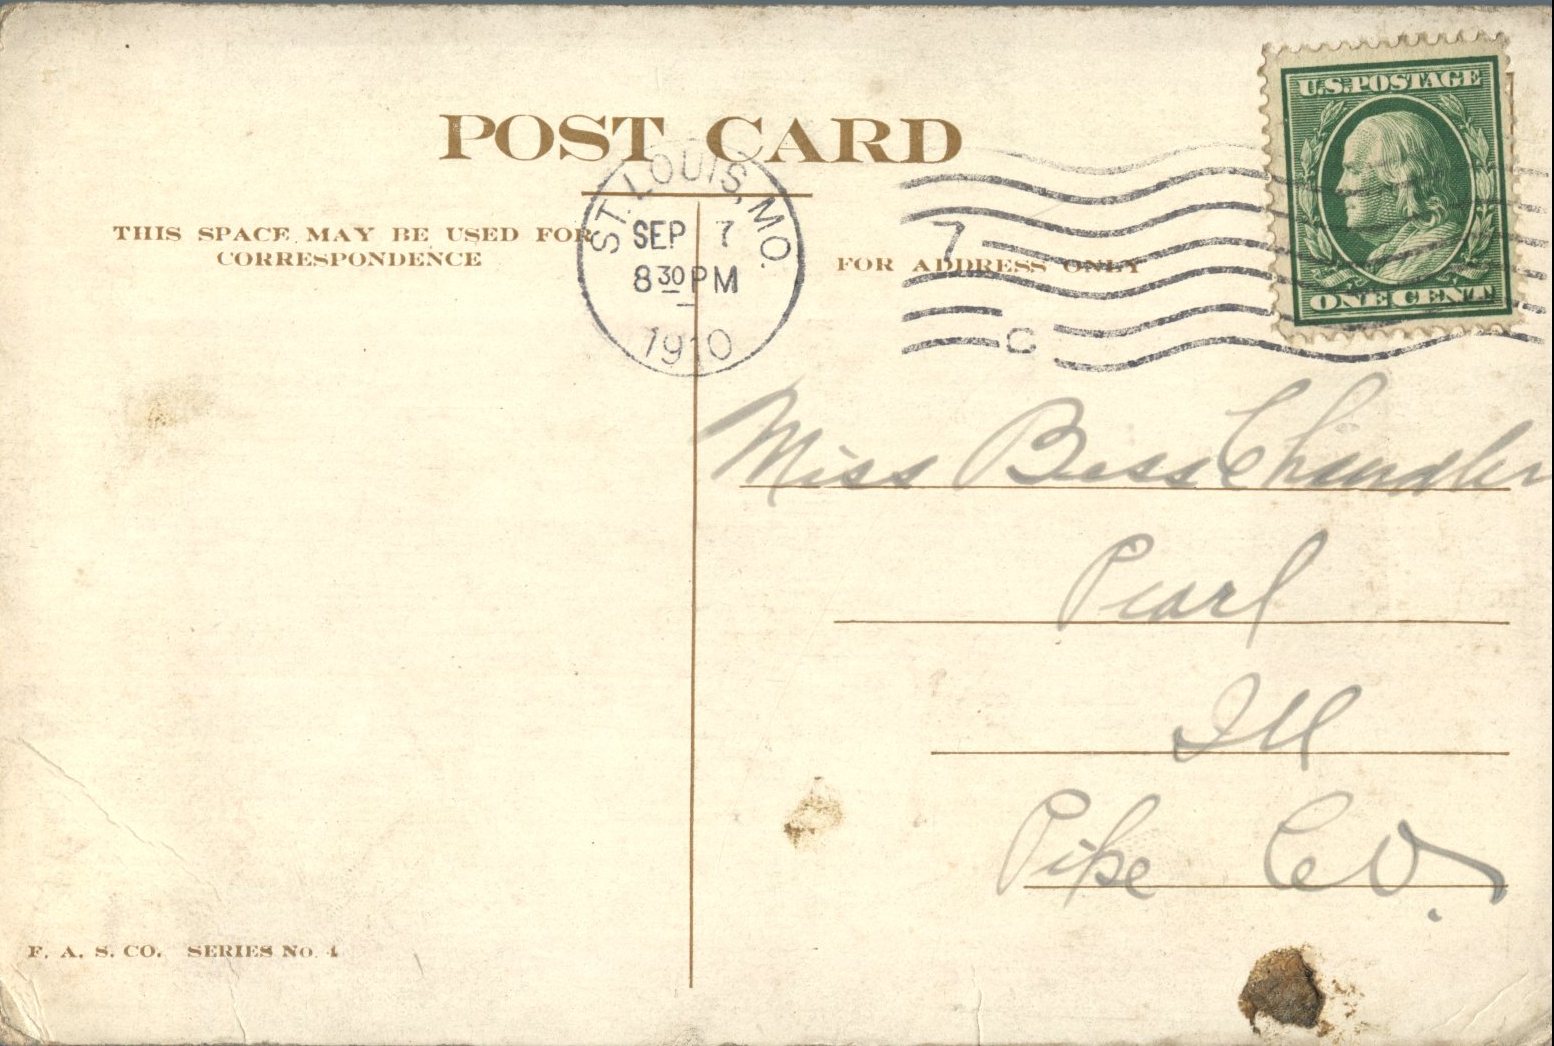 POST CARD
THIS SPACE MAY BE USED FOR
CORRESPONDENCE
ST. LOUIS, MO.
SEP 7
8 30 PM
1910
FOR ADDRESS ONLY
7
C
U.S. POSTAGE
ONE CENT
Miss Bess Chandler
Pearl
Ill
Pike Co.
F. A. S. CO. SERIES No. 4